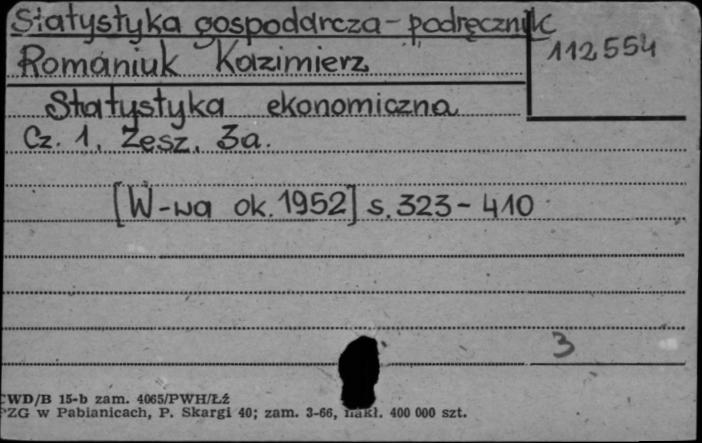 Statystyka gospodarcza - podręcznik
112554
Romaniuk Kazimierz
Statystyka ekonomiczna
Cz. 1. Zesz. 3a.
[W-wa ok. 1952] s. 323 - 410
3
CWD/B 15-b zam. 4065/PWH/Łź
PZG w Pabianicach, P. Skargi 40; zam. 3-66, nakł. 400 000 szt.